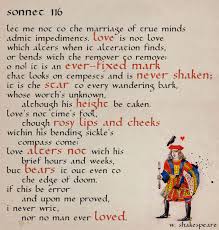 sonnet 116
let me not to the marriage of true minds
admit impediments. love is not love
which alters when it alteration finds,
or bends with the remover to remove:
o no! it is an ever-fixed mark
that looks on tempests and is never shaken;
it is the star to every wandering bark,
whose worth's unknown,
although his height be taken.
love's not time's fool,
though rosy lips and cheeks
within his bending sickle's
compass come:
love alters not with his
brief hours and weeks,
but bears it out even to
the edge of doom.
if this be error
and upon me proved,
i never writ,
nor no man ever loved.
w. shakespeare